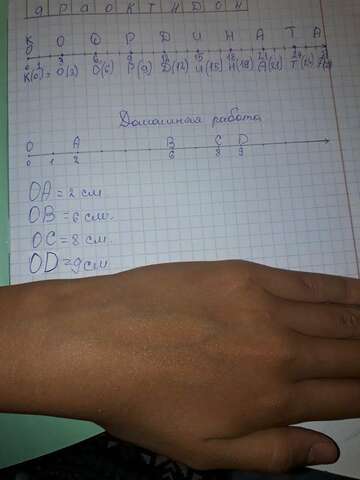 О Р Д О К Т Н D О Н
К О О Р Д И Н А Т А
0 1 3 6 9 12 15 18 21 24
К(0) = О(3) О(6) Р(9) Д(12) И(15) Н(18) А(21) Т(24)
Домашняя работа
О А В С D
0 1 2 6 8 9
ОА = 2 см
ОВ = 6 см.
ОС = 8 см.
ОD = 9 см.